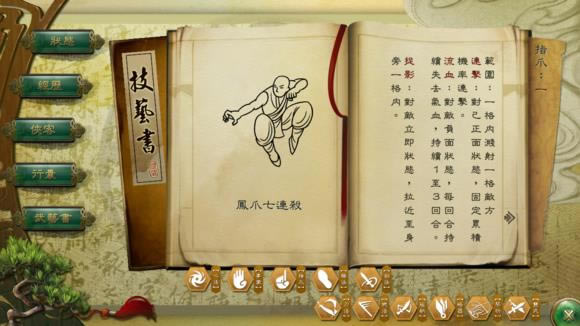 狀態
經歷
俠客
行囊
武藝書
技藝書
鳳爪七連殺
指爪：一
範圍：一格內濺射一格敵方
連擊：對己正面狀態，固定累積
機率連擊。
流血：對敵負面狀態，每回合持
續失去氣血，持續1至3回合。
捉影：對敵立即狀態，拉近至身
旁一格內。